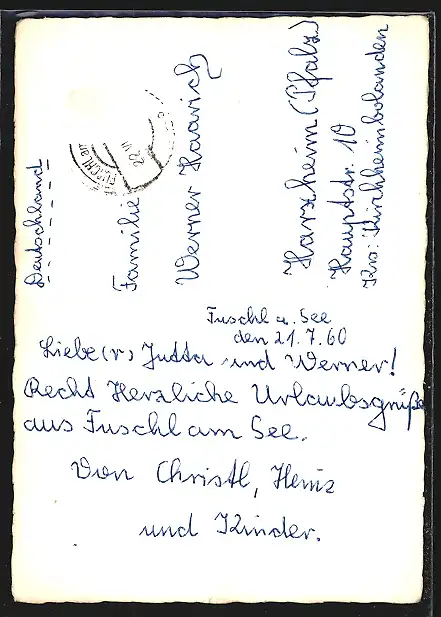 Fuschl a. See
den 21.7.60
Liebe(r) Jutta und Werner!
Recht Herzliche Urlaubsgrüße
aus Fuschl am See.
Von Christl, Heinz
und Kinder.
Deutschland
Familie
Werner Haarich
Harxheim (Pfalz)
Hauptstr. 10
Krs: Kirchheimbolanden
FUSCHL am
22. VII